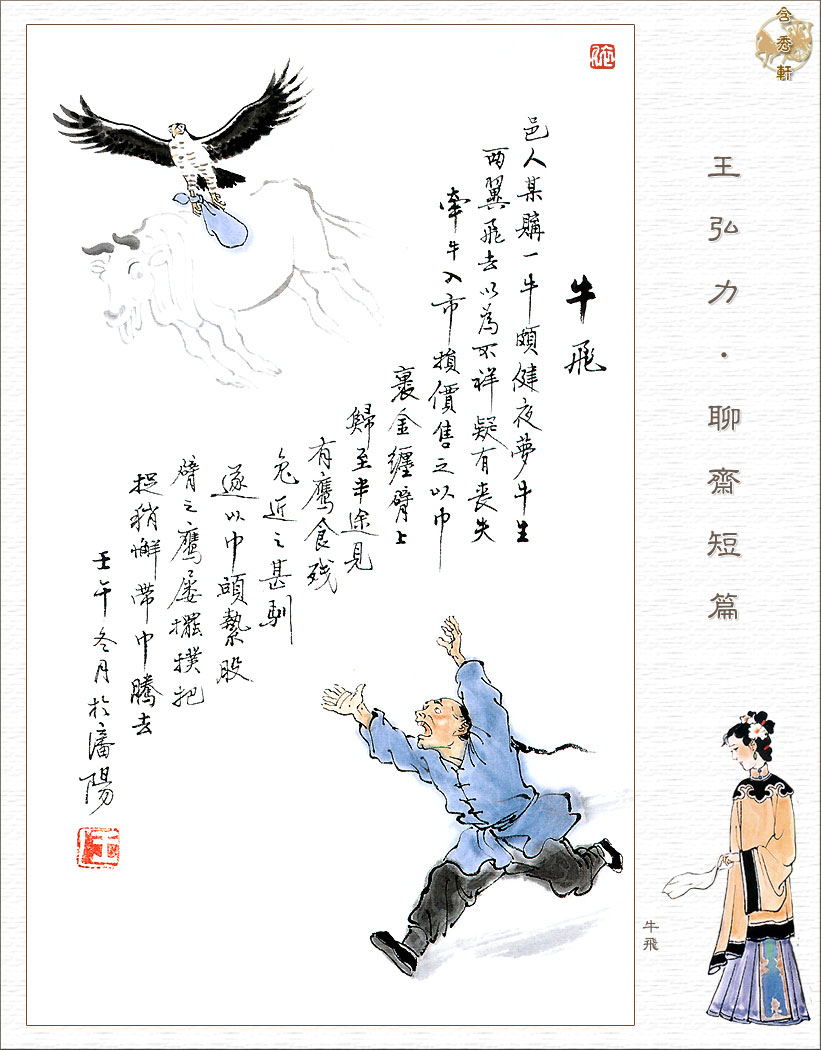 含秀軒
王弘力·聊齋短篇
牛飛
邑人某購一牛頗健夜夢牛生
两翼飛去以為不祥疑有丧失
牽牛入市損價售之以巾
裹金纏臂上
歸至半途見
有鹰食残
兔近之甚馴
遂以巾頭縶股
臂之鷹屡擺撲把
捉稍懈帶巾騰去
壬午冬月於瀋陽
王
牛飛